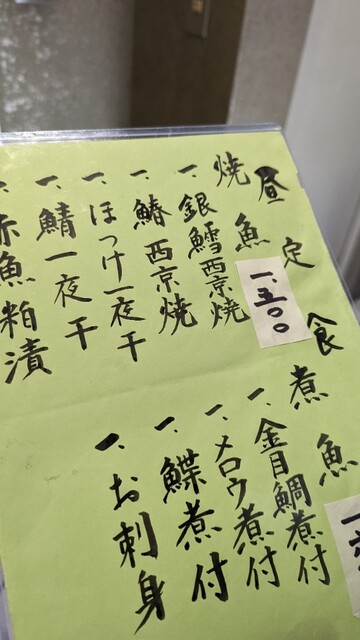 昼定食
焼魚
一、五〇〇
一、銀鱈西京焼
一、鰆西京焼
一、ほっけ一夜干
一、鯖一夜干
一、赤魚粕漬
煮魚
一、金目鯛煮付
一、メロウ煮付
一、鰈煮付
一、お刺身